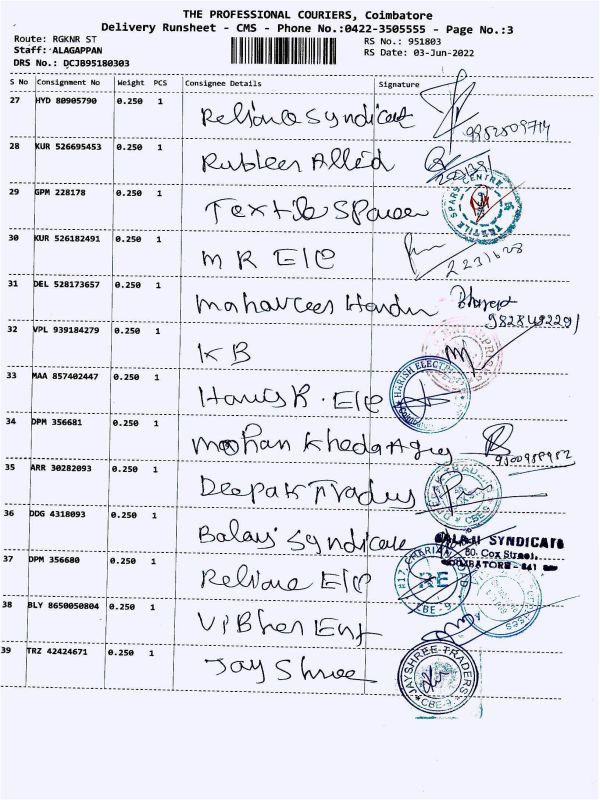 THE PROFESSIONAL COURIERS, Coimbatore
Delivery Runsheet - CMS - Phone No.:0422-3505555 - Page No.:3
Route: RGKNR ST
RS No.: 951803
Staff: ALAGAPPAN
RS Date: 03-Jun-2022
DRS No.: DCJB95180303
S No Consignment No Weight PCS Consignee Details Signature
27 HYD 80905790 0.250 1 Reliance Syndicate
28 KUR 526695453 0.250 1 Rubber Allied
29 GPM 228178 0.250 1 Textile Spares
TEXTILE SPARS CENTRE
30 KUR 526182491 0.250 1 M R E/C
31 DEL 528173657 0.250 1 Mahaveer
32 VPL 939184279 0.250 1 K B
33 MAA 857402447 0.250 1 Harish. E/C
HARISH ELECTR
34 DPM 356681 0.250 1 Mohan Kheda
35 ARR 30282093 0.250 1 Deepak Traders
36 DDG 4318093 0.250 1 Balaji Syndicate
SYNDICATE
80. Cox Street,
COIMBATORE - 641
37 DPM 356680 0.250 1 Reliance E/C
RE
CBE-9
38 BLY 8650050804 0.250 1 Vibhen Ent
39 TRZ 42424671 0.250 1 Jay Shree
JAYSHREE TRADERS
CBE-9